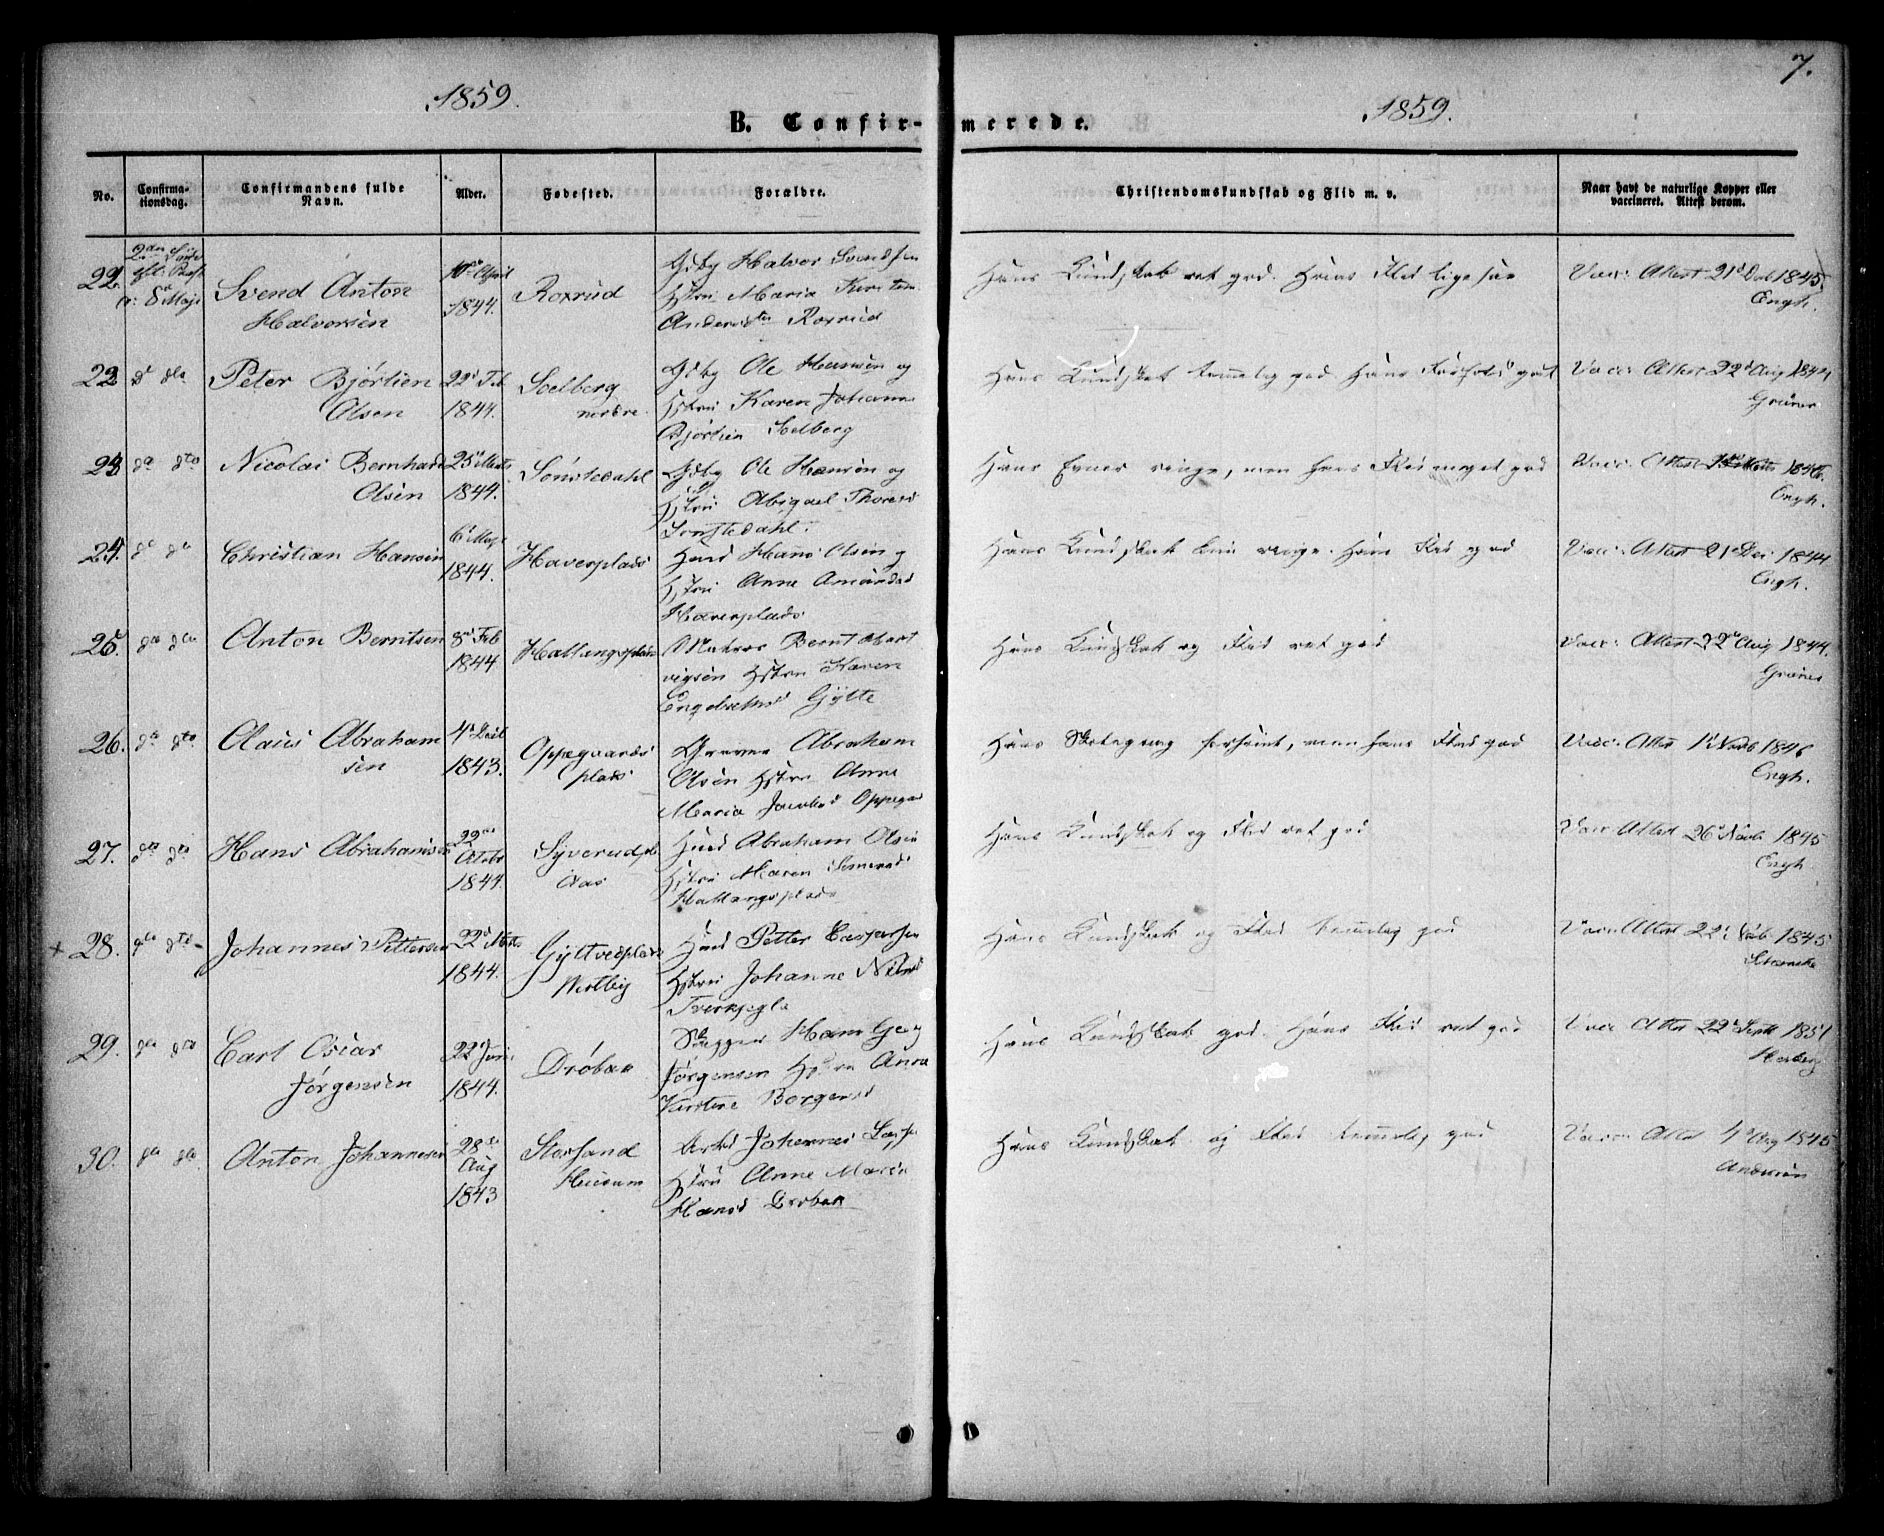 7.
1859.
1859.
B. Confir-
merede.
No.
Confirma-
tionsdag.
Confirmandens fulde
Navn.
Alder.
Fødested.
Forældre.
Christendomskundskab og Flid m. v.
Naar havt de naturlige Kopper eller
vaccineret. Attest derom.
22.
8 Maji
Svend Anton
Halvorsen
10de April
1844.
Roxrud
Gdbr Halvor Svendsen
Hstru Maria Kirstine
Roxrud
Hans Kundskab ret god. Hans Flid ligesaa
Vacc: Attest 21d Decb 1845
Engh.
dto
Peter Bjørtien
Olsen
22d Feb
1844.
Solberg
nordre.
Ole Hansen og
Hstru Karen Johanne
Bjørtien Solberg
Hans Kundskab temmelig god Hans Forhold godt
Vacc: Attest 22d Aug 1844
Grüner
da dto
Nicolai Bernhard
Olsen
25d Marts
1844.
Sønstedahl
Gdbr Ole Hansen og
Hstru Abigael Thoresd
Sønstedahl.
Hans Evner ringe, men hans Flid meget god
Vacc: Attest
Engh.
24.
Christian Hansen
6d Maji
1844.
Haverplads
Huusd Hans Olsen og
Hstru Anne Amundsd
Haverplads
Hans Kundskab kun ringe. Hans Flid god
Vacc: Attest 21d Dec 1844
Engh.
25.
Anton Berntsen
8d Feb
1844.
Hallangsplads
Matros Bernt Hart
vigsen Hstru Karen
Gylte
Hans Kundskab og Flid ret god
Vacc: Attest 22d Aug 1844.
Grüner
26.
Claus Abraham
sen
1843.
Oppegaards
plads
Abraham
Olsen Hstru Anne
Maria Jacobsd Oppegrd
Hans Skolegang forsømt, men hans Flid god
Vacc: Attest 1d Novb 1846
Engh.
27.
Hans Abrahamsen
22de
Octobr
1844.
Syverudpl
Aas
Huusd Abraham Olsen
Hstru Maren
Hallangsplads
Hans Kundskab og Flid ret god
Vacc Attest 26d Novb 1845
Engh.
+ 28.
Johannes Pettersen
22d Marts
1844.
Gyltvedplads
Vestby
Huusd Petter Caspersen
Hstru Johanne Nilsd
Hans Kundskab og Flid temmelig god
Vacc: Attest 22d
1845
29.
Carl Oscar
Jørgensen
22d Juni
1844.
Drøbak
Skipper Hans Georg
Jørgensen Hstru Anna
Kirstine Borgersd
Hans Kundskab god. Hans Flid ret god
Vacc Attest 22d Septb 1851
30.
Anton Johannesen
28de
Aug
1843
Storsand
Huusum
Johannes
Hstru Anne Marie
Hansd Drøbak
Hans Kundskab og Flid temmelig god
Vacc: Attest 4d Aug 1845
Andersen